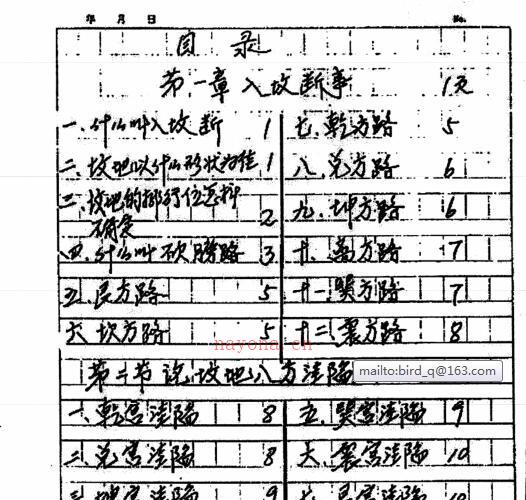 年 月 日 No.
目 录
第一章 入坟断事 1页
一、什么叫入坟断 1
二、坟地以什么形状为佳 1
三、坟地的排行位怎样
确定 2
四、什么叫砍膀路 3
五、艮方路 5
六、坎方路 5
七、乾方路 5
八、兑方路 6
九、坤方路 6
十、离方路 7
十一、巽方路 7
十二、震方路 8
nayona.cn
第二节 说坟地八方洼陷
mailto:bird_q@163.com
一、乾宫洼陷 8
二、兑宫洼陷 8
三、坤宫洼陷 9
五、巽宫洼陷 9
六、震宫洼陷 10
七、艮宫洼陷 10